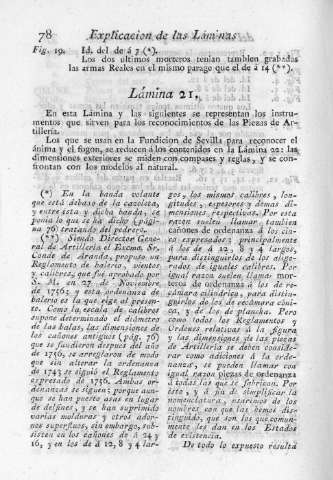 78 Explicacion de las Láminas
Fig. 19. Id. del de á 7 (*).
Los dos ultimos morteros tenian tambien grabadas
las armas Reales en el mismo parage que el de á 14 (**).
Lámina 21.
En esta Lámina y las siguientes se representan los instru-
mentos que sirven para los reconocimientos de las Piezas de Ar-
tillería.
Los que se usan en la Fundicion de Sevilla para reconocer el
ánima y el fogon, se reducen á los contenidos en la Lámina 22: las
dimensiones exteriores se miden con compases y reglas, y se con-
frontan con los modelos al natural.
(*) En la banda volante
que está debaxo de la cazoleta,
y entre esta y dicha banda, se
ponia lo que se ha dicho (pági-
na 76) tratando del pedrero.
(**) Siendo Director Gene-
ral de Artillería el Excmo. Sr.
Conde de Aranda, propuso un
Reglamento de balerío, vientos
y calibres, que fué aprobado por
S. M. en 27 de Noviembre
de 1756, y esta ordenanza de
balerío es la que rige al presen-
te. Como la escala de calibres
supone determinado el diámetro
de las balas, las dimensiones de
los cañones antiguos (pág. 76)
que se fundieron despues del año
de 1756, se arreglaron de modo
que sin alterar la ordenanza
de 1743 se siguió el Reglamento
expresado de 1756. Ambas or-
denanzas se siguen; porque aun-
que se han puesto asas en lugar
de delfines, y se han suprimido
varias molduras y otros ador-
nos superfluos, sin embargo, sub-
sisten en los cañones de á 24 y
16, y en los de á 12, 8 y 4 lar-
gos, los mismos calibres, lon-
gitudes, espesores y demas di-
mensiones respectivas. Por esta
razon suelen llamar tambien
cañones de ordenanza á los cin-
co expresados; principalmente
á los de á 12, 8 y 4 largos,
para distinguirlos de los alige-
rados de iguales calibres. Por
igual razon suelen llamar mor-
teros de ordenanza á los de re-
cámara cilindrica, para distin-
guirlos de los de recámara cóni-
ca, y de los de plancha. Pero
como todos los Reglamentos y
Ordenes relativas á la figura
y las dimensiones de las piezas
de Artillería se deben conside-
rar como adiciones á la orde-
nanza, se pueden llamar con
igual razon piezas de ordenanza
á todas las que se fabrican. Por
esto, y á fin de simplificar la
nomenclatura, usarémos de los
nombres con que las hemos dis-
tinguido, que son los que comun-
mente les dan en los Estados
de existencia.
De todo lo expuesto resulta